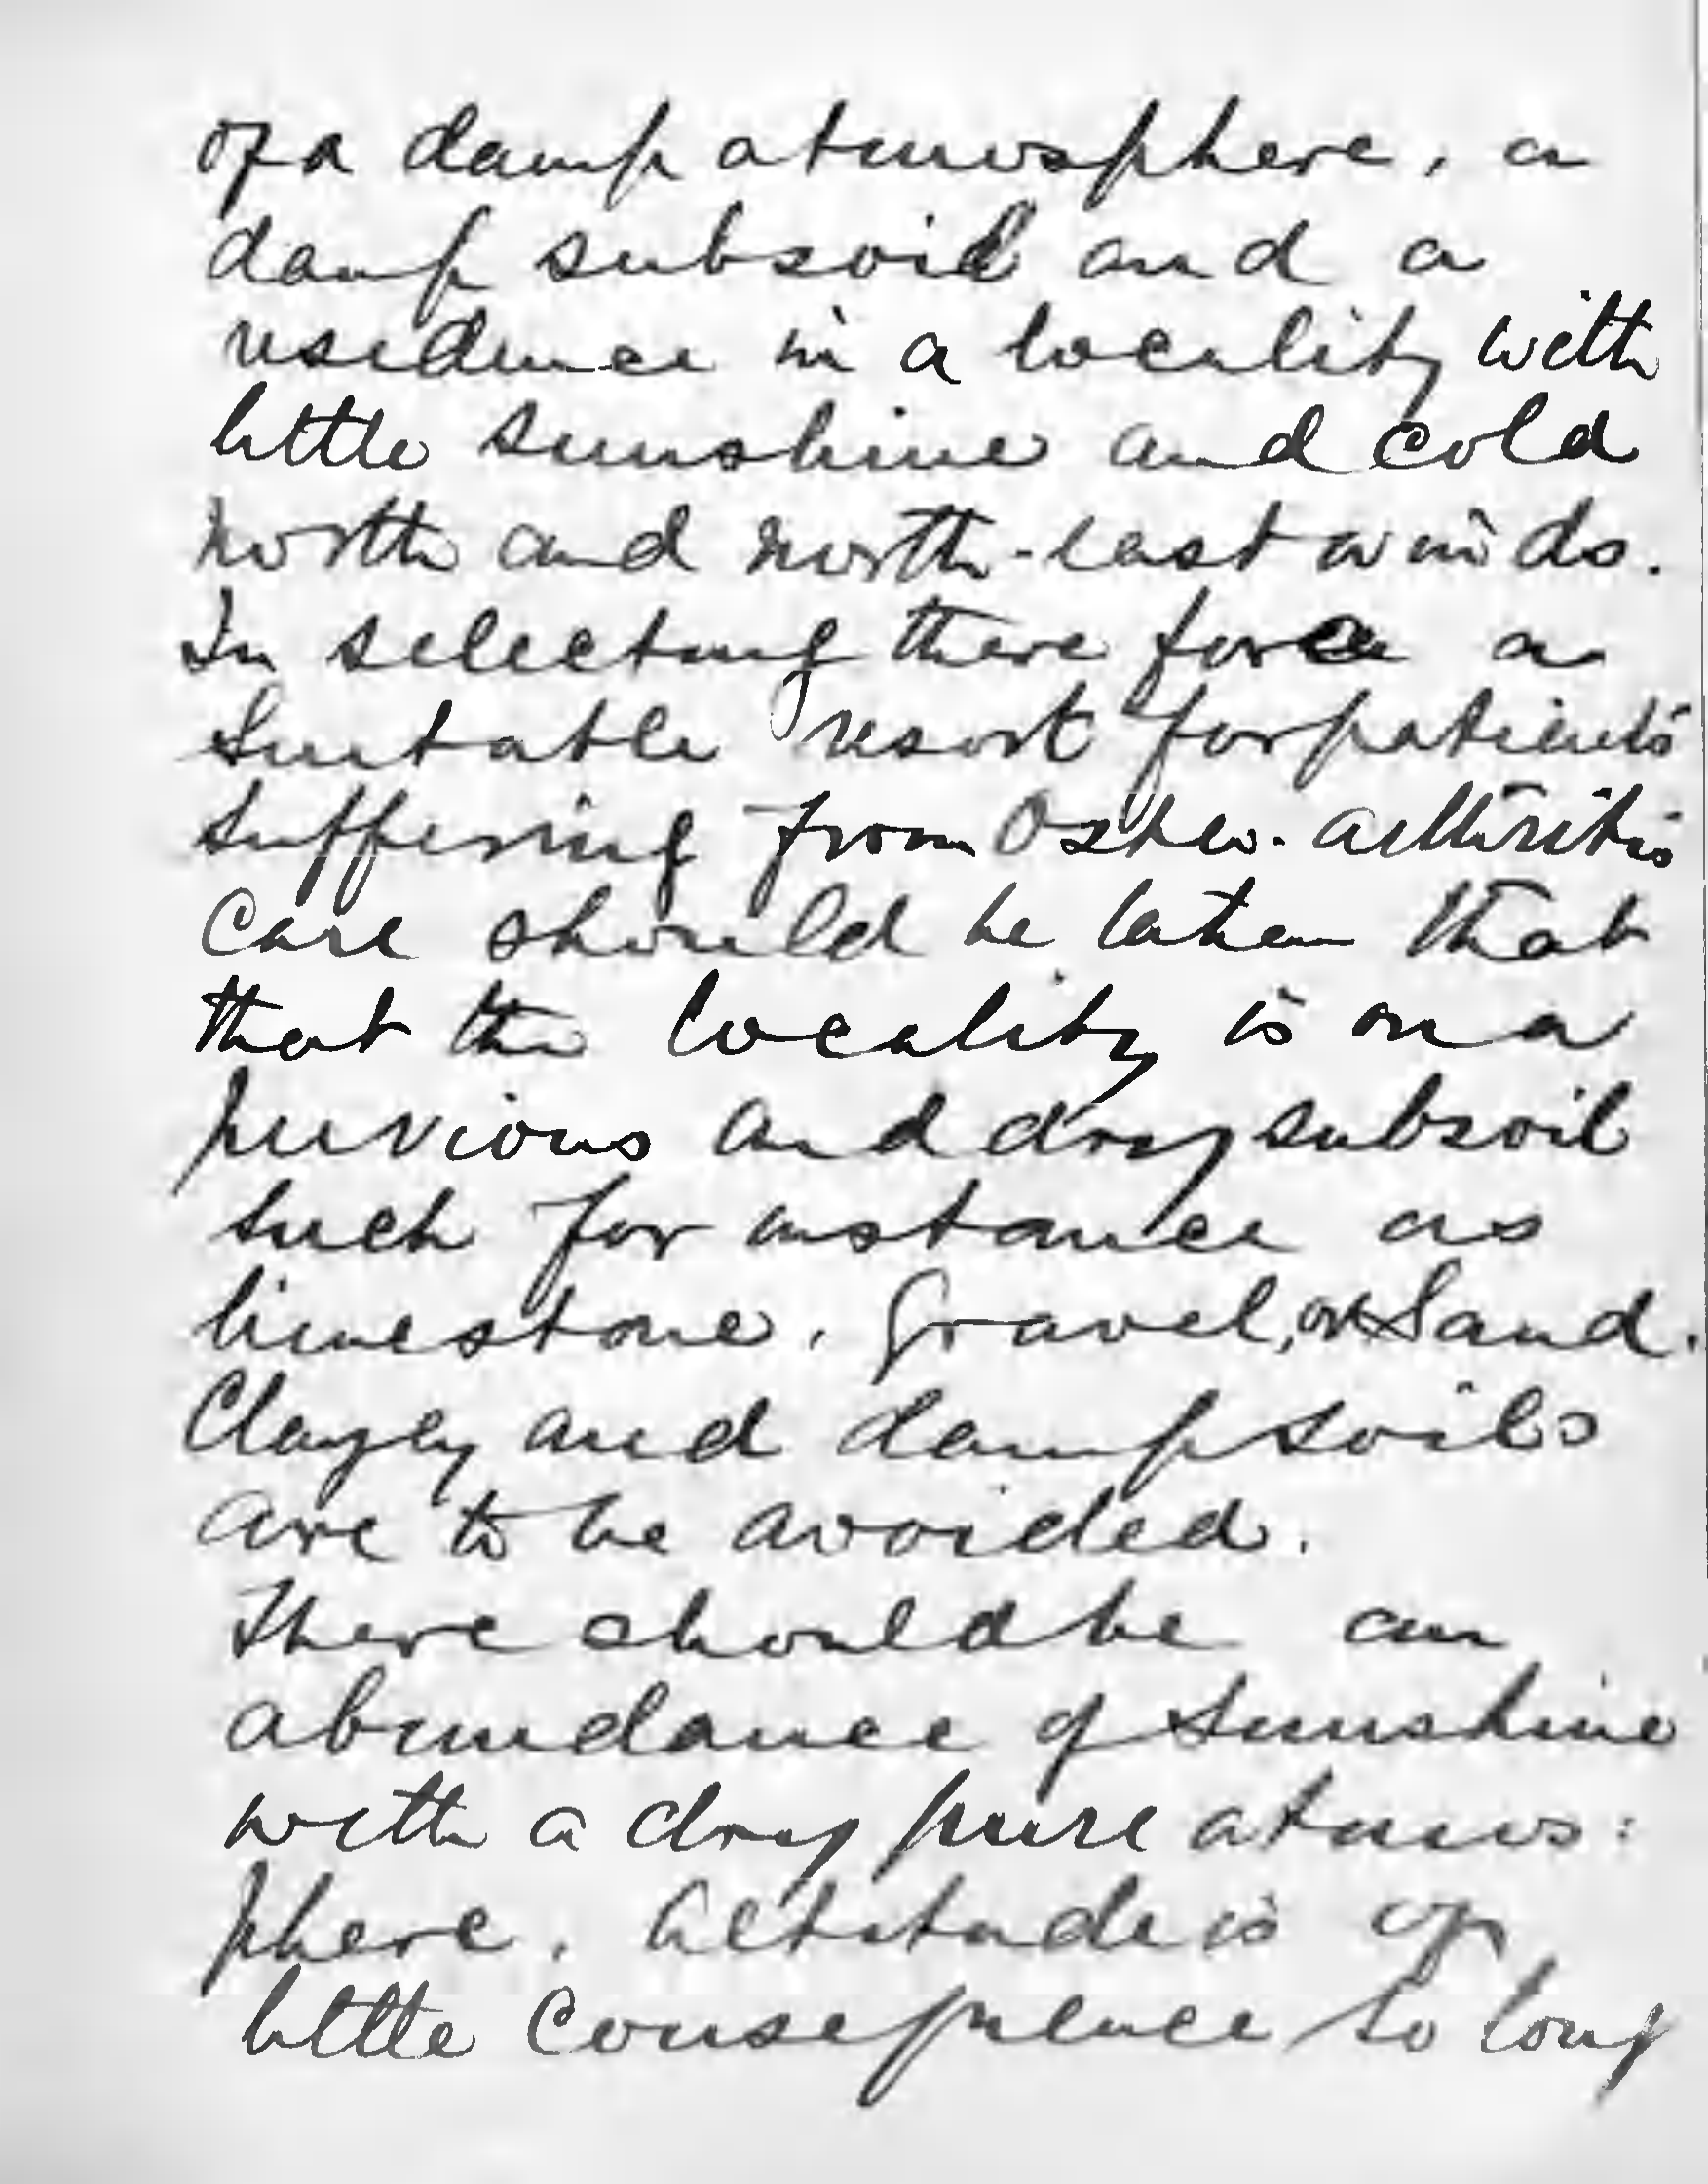 of a damp atmosphere, a
damp subsoil and a
residence in a locality with
little sunshine and cold
north and north-east winds.
In selecting there fore a
Suitable resort for patients
suffering from Osteo-arthritis
Care should be taken that
that the locality is on a
pervious and dry subsoil
such for instance as
limestone, Gravel, or Sand.
Clayey and damp soils
are to be avoided.
There should be an
abundance of sunshine
with a dry pure atmos:
phere. Altitude is of
little consequence so long